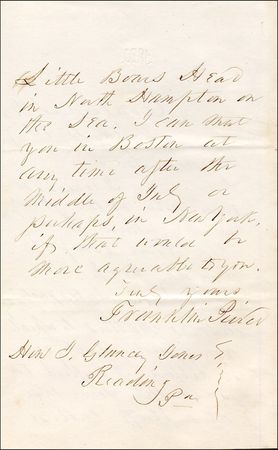 Little Boars Head
in North Hampton on
the Sea. I can that
you in Boston at
any time after the
middle of July or
perhaps, in New York,
if that would be
more agreeable to you.
Truly yours,
Franklin Pierce
Hon. J. Glancey Jones
Reading
Pa